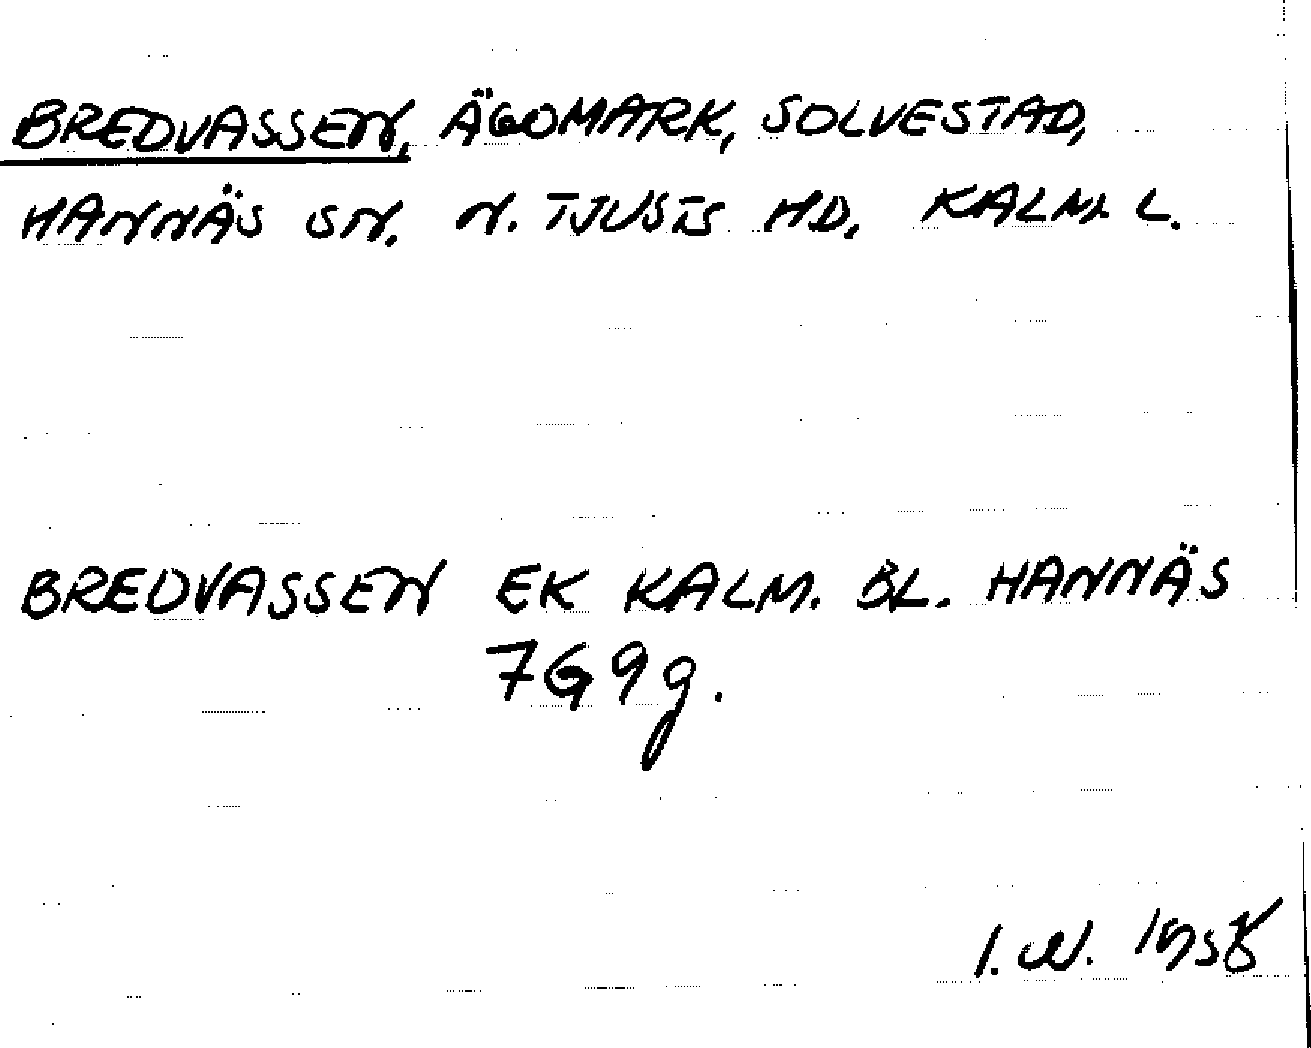 BREDVASSEN, ÄGOMARK, SOLVESTAD,
HANNÄS SN. N. TJUSTS HD. KALM. L.
BREDVASSEN EK KALM. BL. HANNÄS
7G9g.
I. W. 1958